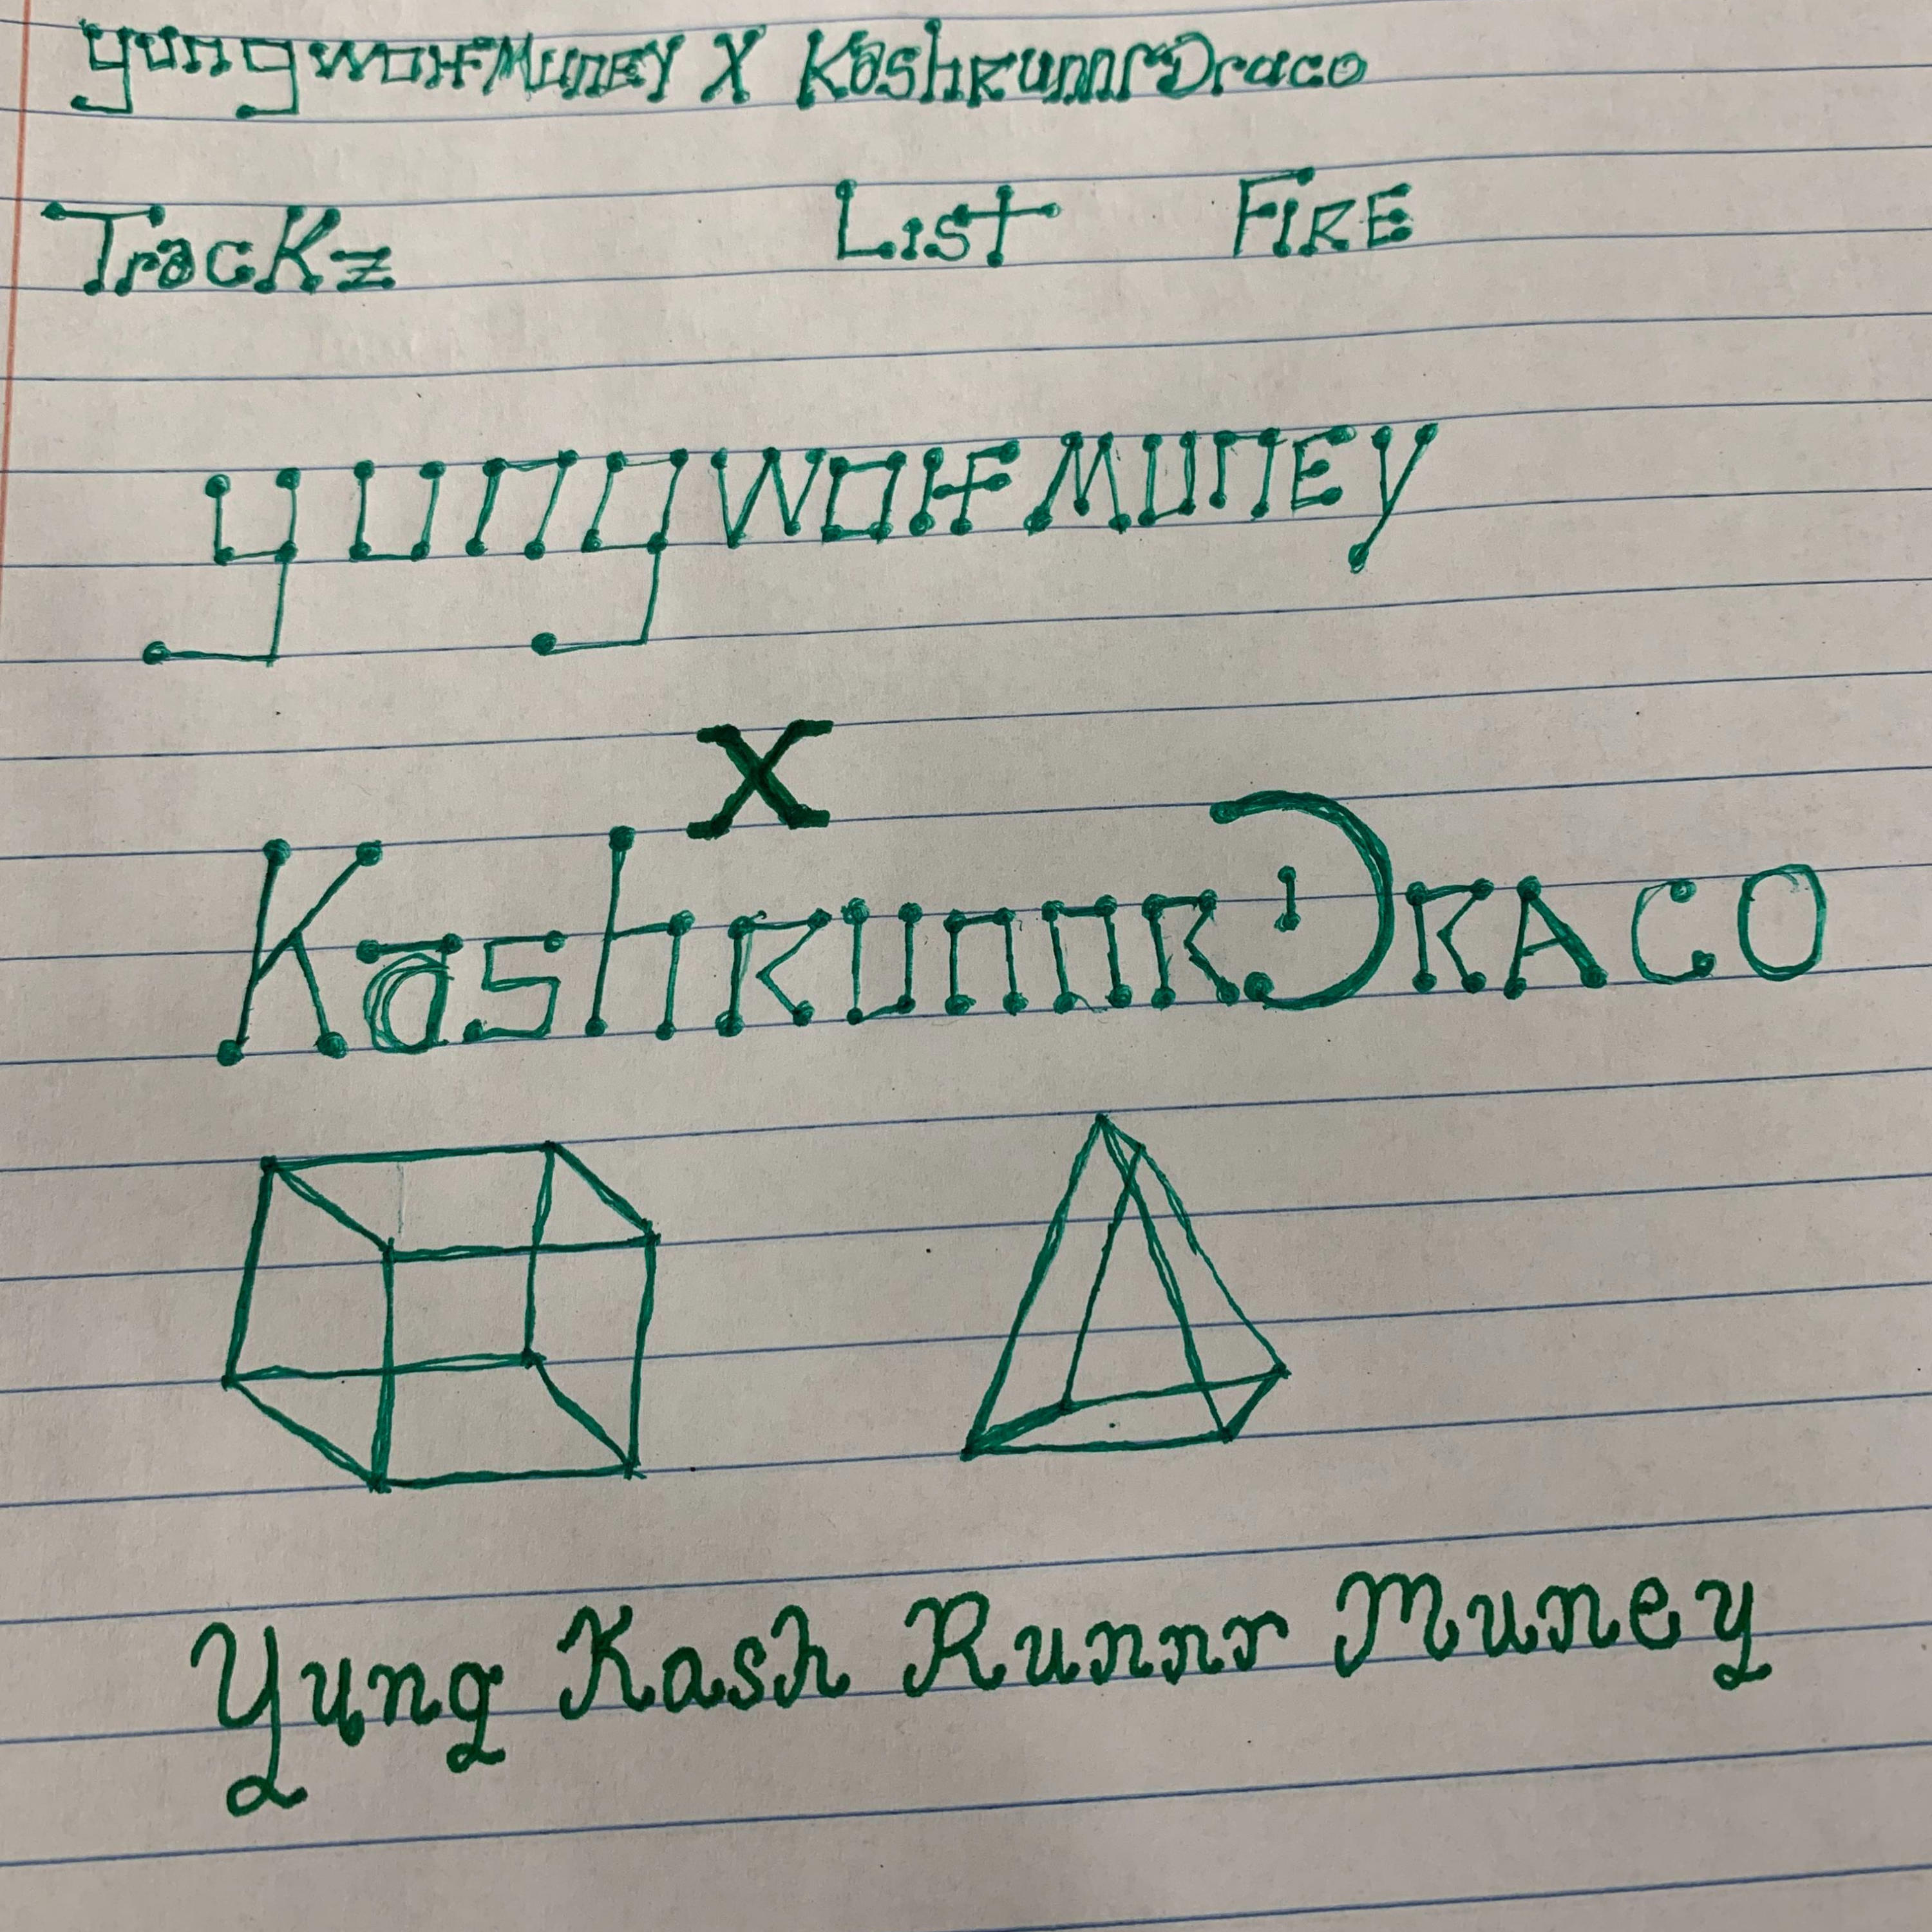 yungwolfMuneY X KashRunnrDraco
TracKz List FIRE
yungwolfMuneY
X
KashRunnRDRACO
Yung Kash Runnr Muney